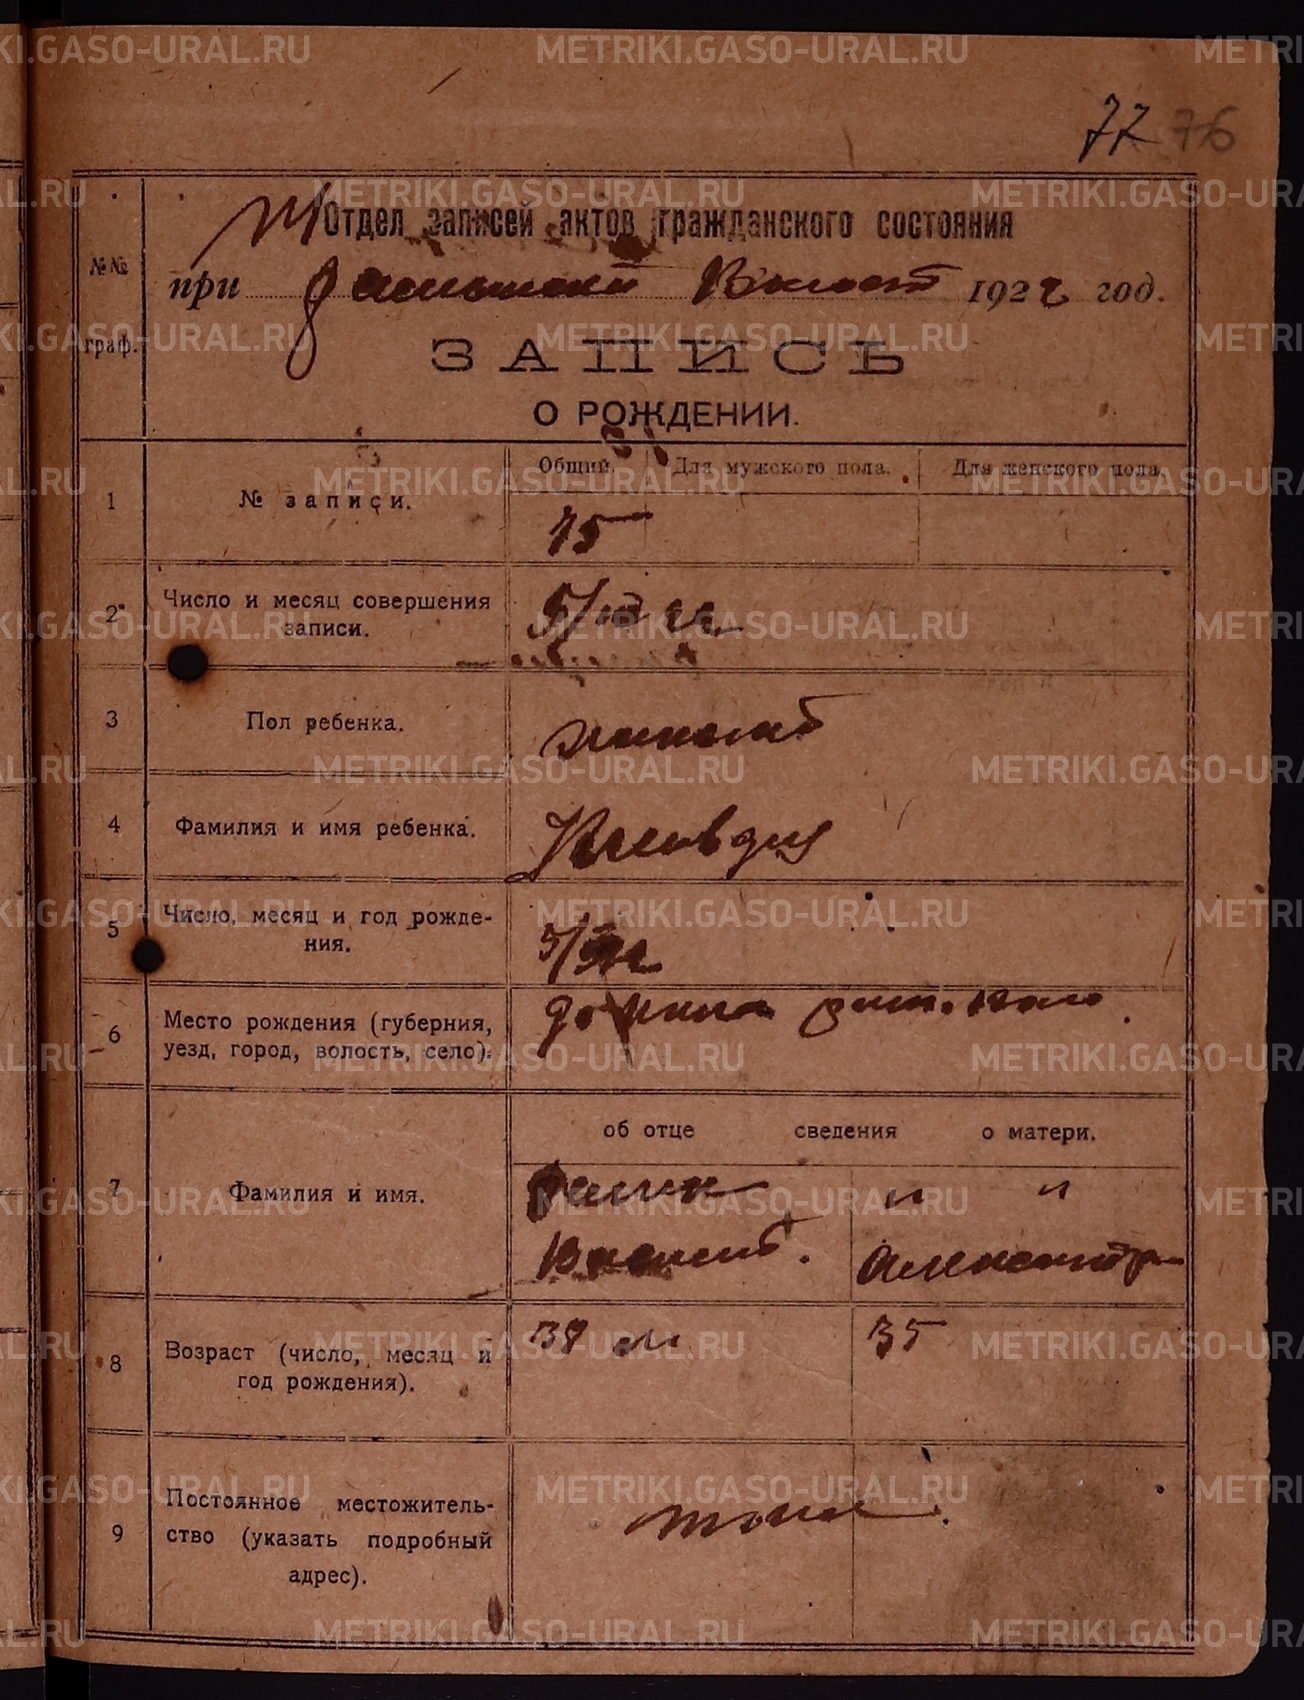 METRIKI.GASO-URAL.RU
77 76
П/Отдел записей актов гражданского состояния
№№ граф.
при Волост 1922 год.
ЗАПИСЬ
О РОЖДЕНИИ.
1 № записи.
Общий. Для мужского пола. Для женского пола.
75
2 Число и месяц совершения записи.
3 Пол ребенка.
женский
4 Фамилия и имя ребенка.
Клавдия
5 Число, месяц и год рождения.
6 Место рождения (губерния, уезд, город, волость, село).
7 Фамилия и имя.
об отце сведения о матери.
" "
Василий. Александра
8 Возраст (число, месяц и год рождения).
39 л 35
9 Постоянное местожительство (указать подробный адрес).